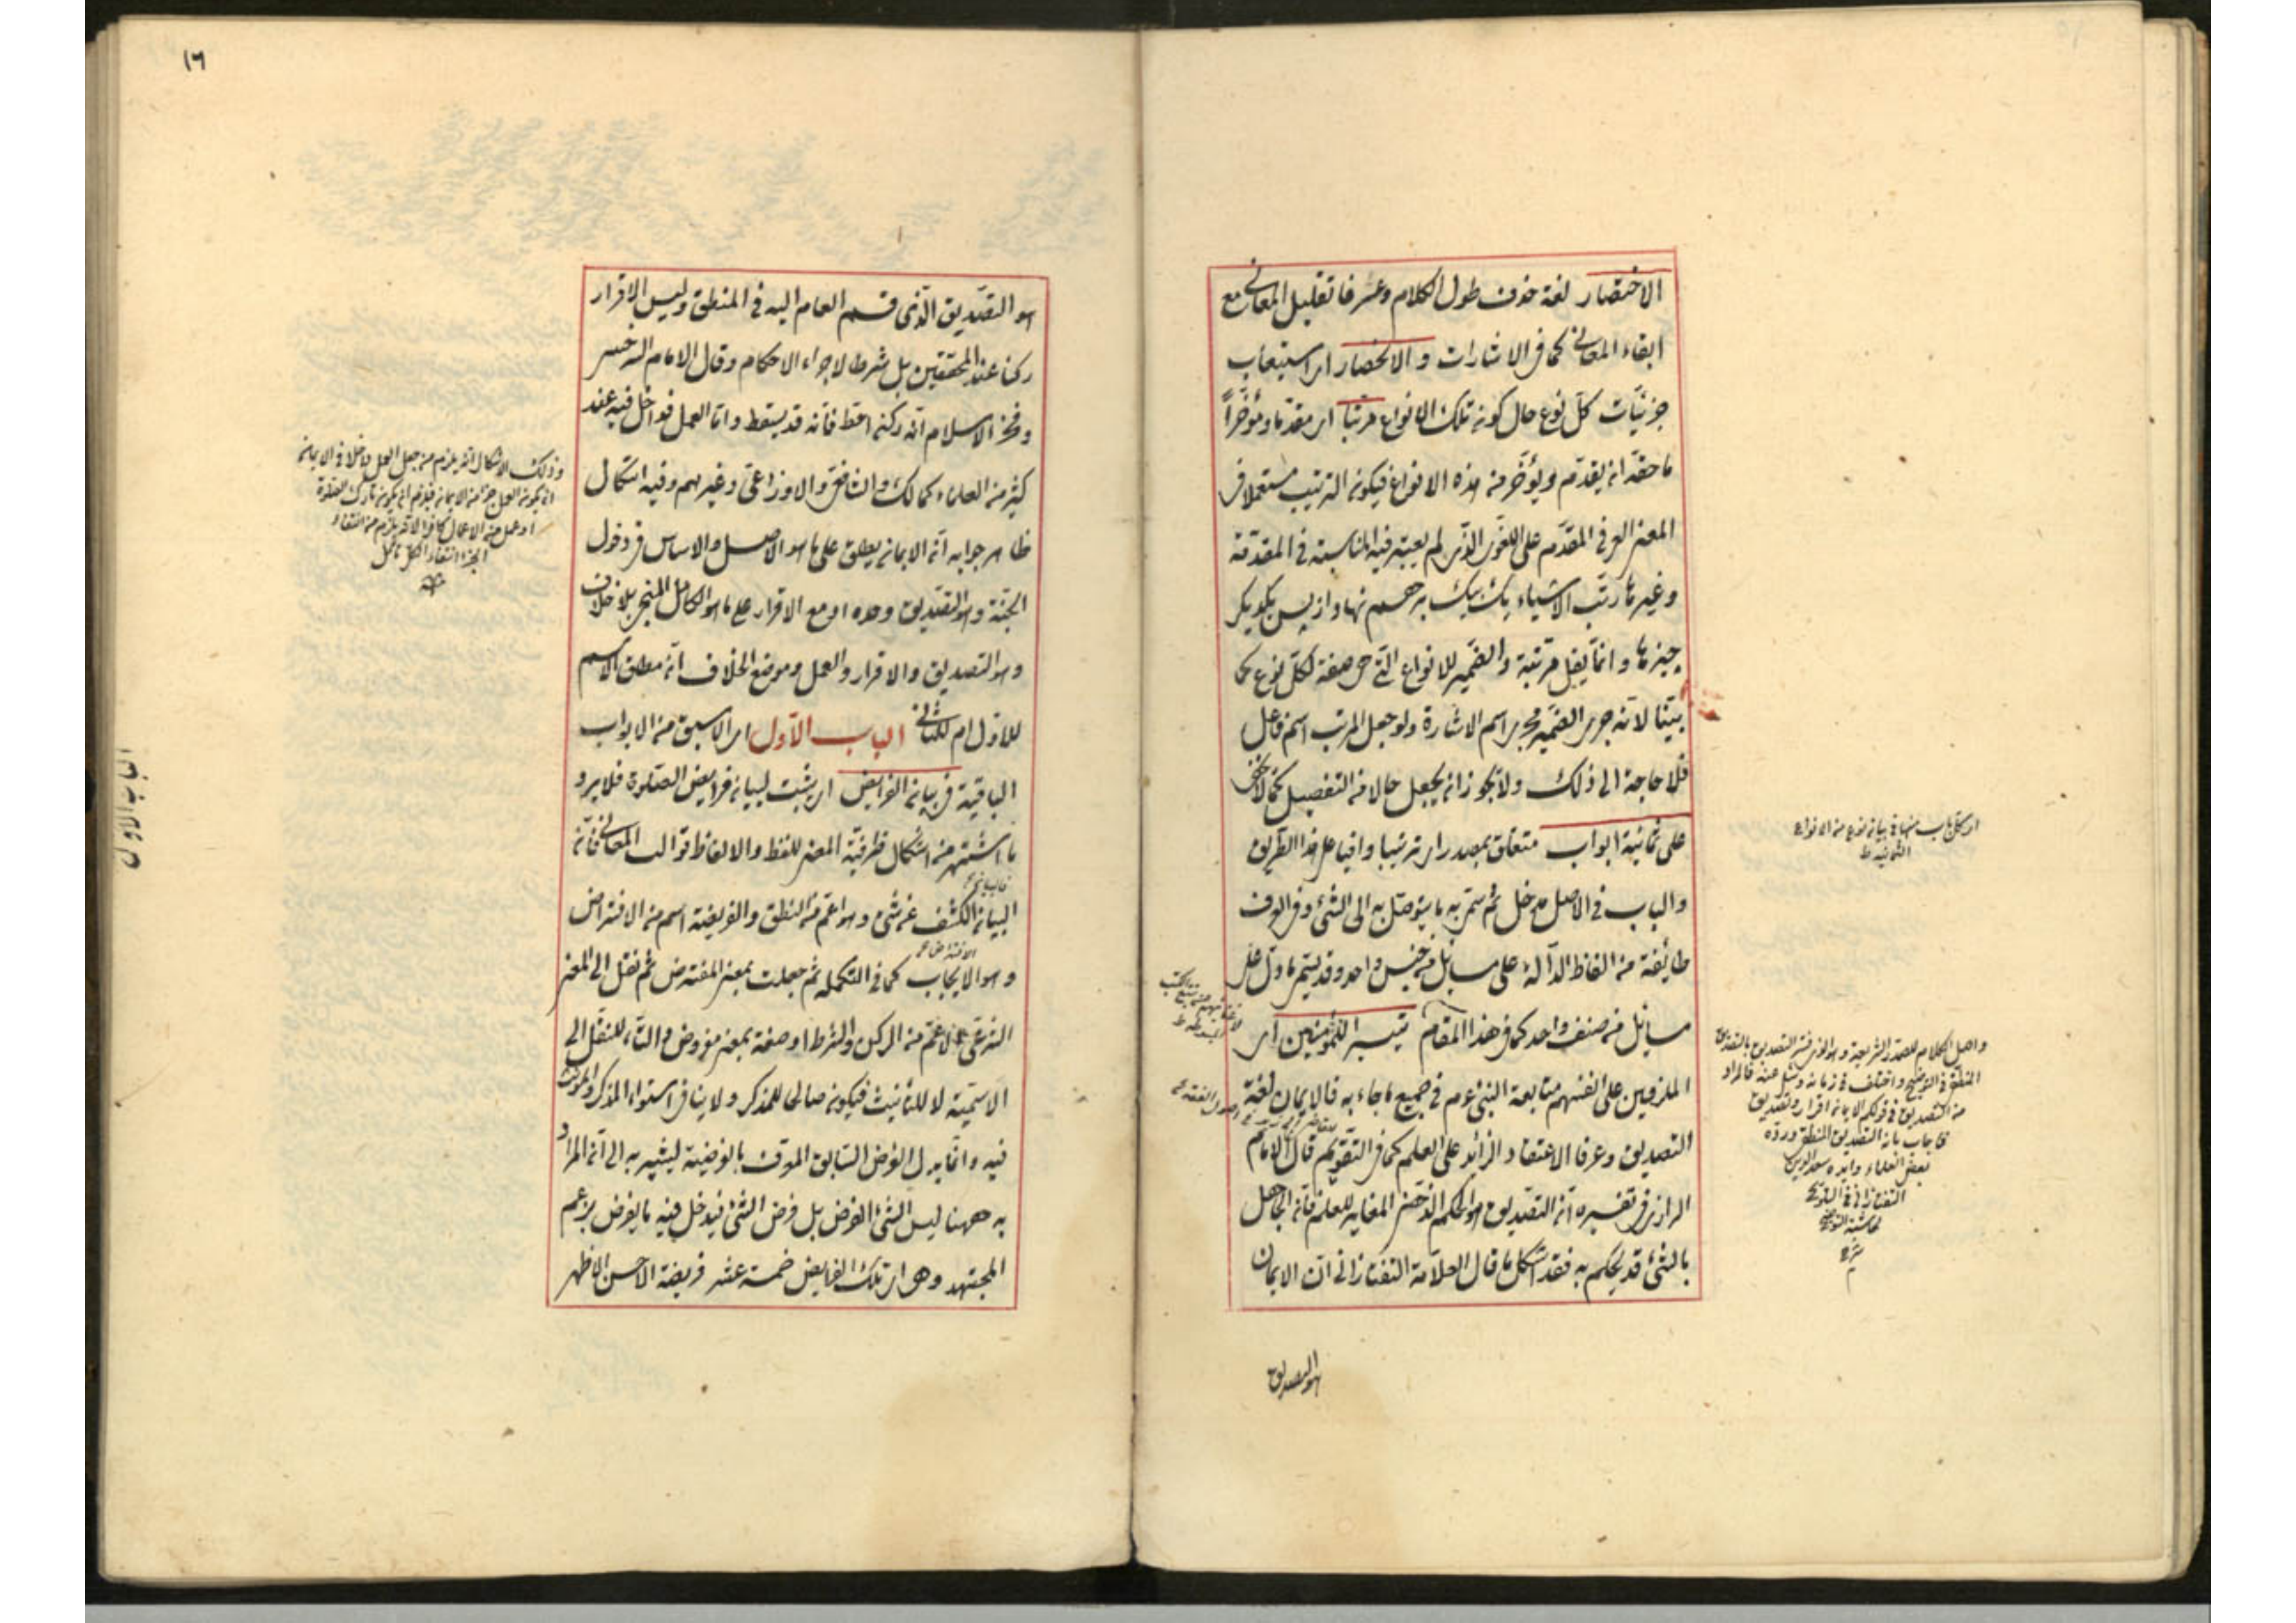 الاختصار لغة حذف طول الكلام وعرفا تقليل المعانى مع
ابقاء المعانى كما فى الاشارات والانحصار اى استيعاب
جزئيات كل نوع حال كونه تلك الانواع مرتبا اى مقدما ومؤخرا
ما حقه ان يقدم ويؤخر من هذه الانواع فيكون الترتيب مستعملا فى
المعنى العرفى المقدم على اللغوى الذى لم يعتبر فيه المناسبة فى المقدمة
وغيرها رتب الاشياء يك بيك برهم نهاد از پس يكديكر
چيزها وانما يقل مرتبة والضمير للانواع التى هى صفة لكل نوع كما
بينا لانه جرى الضمير مجرى اسم الاشارة ولو جعل المرتب اسم فاعل
فلا حاجة الى ذلك ولا يجوز ان يجعل حالا من التفصيل كما لا يخفى
على ثمانية ابواب متعلق بمصدر اى ترتيبا واقعا على هذا الطريق
والباب فى الاصل مدخل ثم سمى به ما يتوصل به الى الشئ وفى العرف
طائفة من الفاظ الدالة على مسائل من جنس واحد وقد يسمى ما دل على
مسائل من صنف واحد كما فى هذا المقام تيسيرا للمؤمنين اى
الملزمين على انفسهم متابعة النبى عم فى جميع ما جاء به فالايمان لغة
التصديق وعرفا الاعتقاد الزائد على العلم كما فى التقويم قال الامام
الرازى فى تفسيره ان التصديق هو الحكم الذهنى المغاير للعلم فان الجاهل
بالشئ قد يحكم به فقد اشكل ما قال العلامة التفتازانى ان الايمان
هو التصديق
او كل باب منها فى بيان نوع من الانواع
الثمانية ط
واهل الكلام للصدر الشريعة وهو الذى فسر التصديق بالتصديق
المنطقى فى التوضيح واختلف فى زمانه وسئل عنه فالمراد
من التصديق فى قولكم الايمان اقرار وتصديق
فاجاب بان التصديق المنطقى ورده
بعض العلماء وايده سعد الدين
التفتازانى فى التلويح
حاشية التوضيح
١٦
هو التصديق الذى قسم العام اليه فى المنطق وليس الاقرار
ركنا عند المحققين بل شرط لاجراء الاحكام وقال الامام السرخسى
وفخر الاسلام انه ركن احط فانه قد يسقط واما العمل فداخل فيه عند
كثير من العلماء كمالك والشافعى والاوزاعى وغيرهم وفيه اشكال
ظاهر جوابه ان الايمان يطلق على ما هو الاصل والاساس فى دخول
الجنة وهو التصديق وحده او مع الاقرار على ما هو الكامل المنجى بلا خلاف
وهو التصديق والاقرار والعمل وموضع الخلاف ان مطلق الاسم
للاول ام للثانى الباب الاول اى الاسبق من الابواب
الباقية فى بيان الفرايض اى يثبت لبيان فرايض الصلوة فلا يرد
ما اشتهر من اشكال ظرفية المعنى للفظ والالفاظ قوالب المعانى فان
البيان الكشف عن شئ وهو اعم من النطق والفريضة اسم من الافتراض
وهو الايجاب كما فى التكملة ثم جعلت بمعنى المفترض ثم نقل الى المعنى
الشرعى الاعم من الركن والشرط او صفة بمعنى مفروض والتاء للنقل الى
الاسمية لا للتأنيث فيكون صالحا للمذكر ولا ينافى استواء المذكر والمؤنث
فيه وانما بدل الفرض السابق الموقف بالفرضية ليشير به الى ان المراد
به ههنا ليس الشئ الفرض بل فرض الشئ فيدخل فيه ما يفرض بزعم
المجتهد وهى اى تلك الفرايض خمسة عشر فريضة الاحسن الاظهر
وذلك الاشكال انه يلزم من جعل العمل داخلا فى الايمان
ان يكون العمل جزء من الايمان فيلزم ان يكون تارك الصلوة
او عمل من الاعمال كافرا لانه يلزم من انتفاء
الجزء انتفاء الكل تأمل
الباب الاول